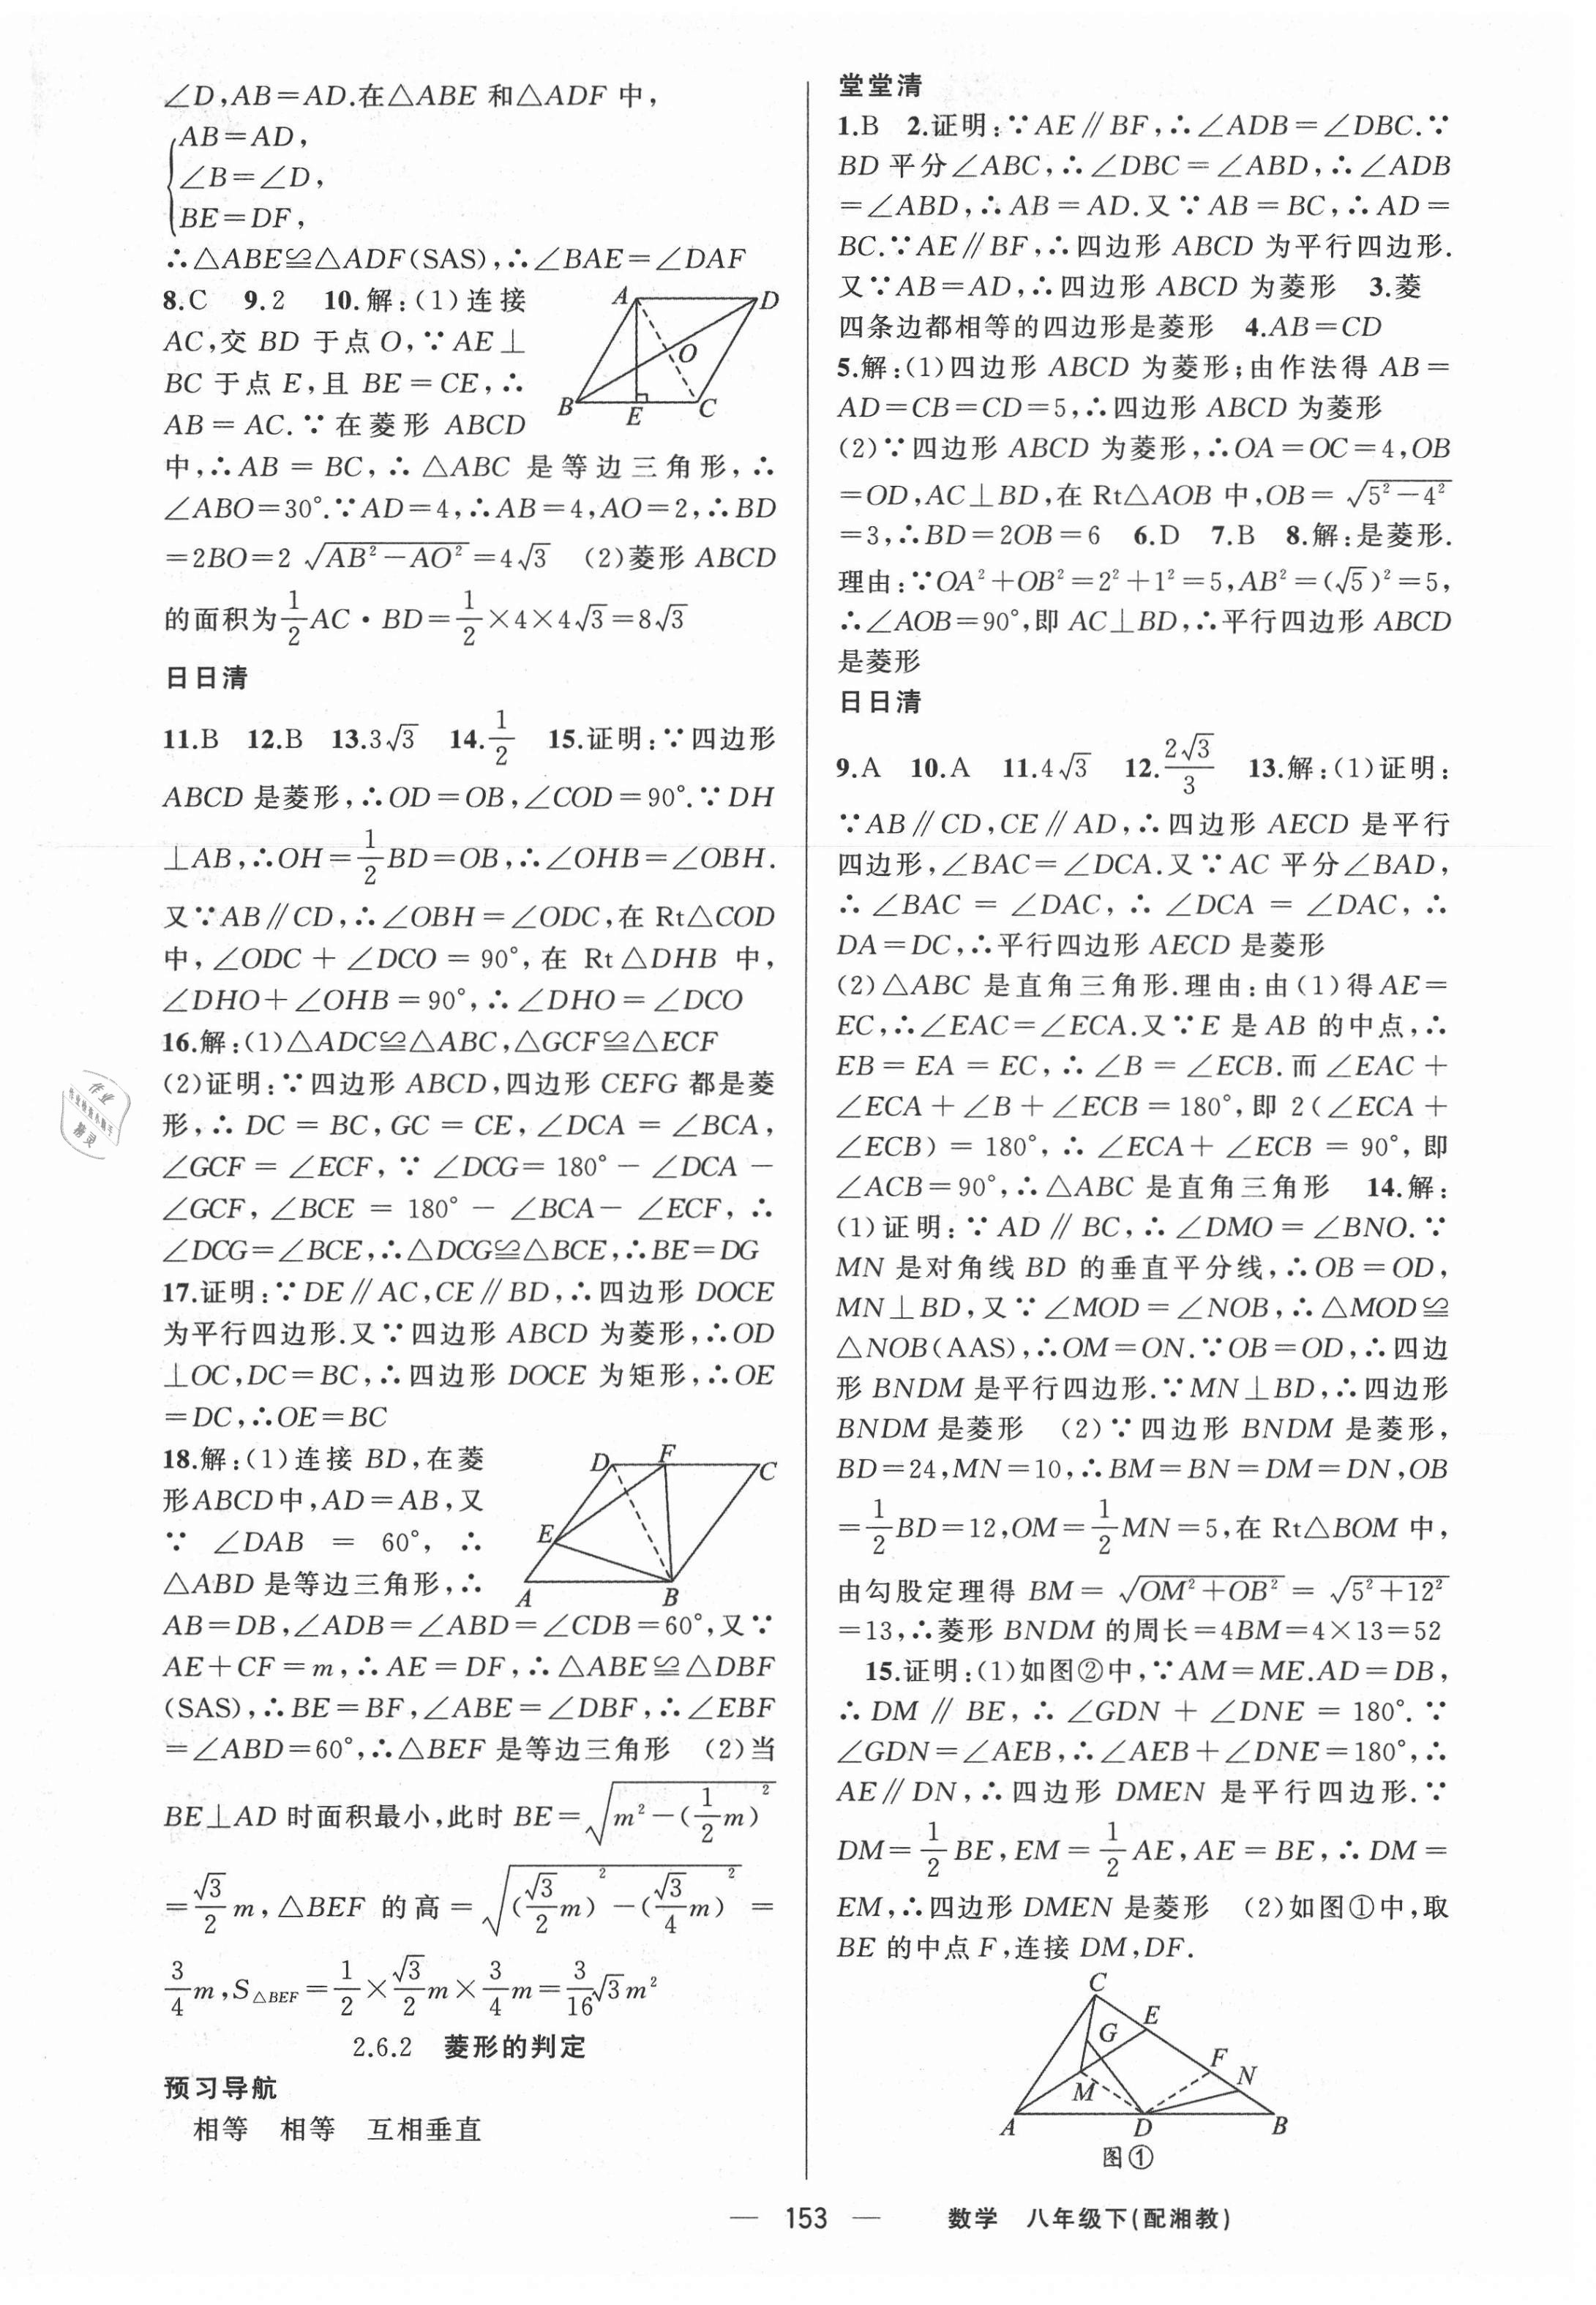 ∠D,AB=AD.在△ABE 和△ADF 中,
AB=AD,
∠B=∠D,
BE=DF,
∴△ABE≌△ADF(SAS),∴∠BAE=∠DAF
8.C 9.2 10.解:(1)连接
AC,交 BD 于点 O,∵AE⊥
BC 于点 E,且 BE=CE,∴
AB=AC.∵在菱形 ABCD
中,∴AB=BC,∴△ABC 是等边三角形,∴
∠ABO=30°.∵AD=4,∴AB=4,AO=2,∴BD
=2BO=2√(AB²-AO²)=4√3 (2)菱形 ABCD
的面积为1/2AC·BD=1/2×4×4√3=8√3
A D O B E C
日日清
11.B 12.B 13.3√3 14.1/2 15.证明:∵四边形
ABCD 是菱形,∴OD=OB,∠COD=90°.∵DH
⊥AB,∴OH=1/2BD=OB,∴∠OHB=∠OBH.
又∵AB∥CD,∴∠OBH=∠ODC,在 Rt△COD
中,∠ODC+∠DCO=90°,在 Rt△DHB 中,
∠DHO+∠OHB=90°,∴∠DHO=∠DCO
16.解:(1)△ADC≌△ABC,△GCF≌△ECF
(2)证明:∵四边形 ABCD,四边形 CEFG 都是菱
形,∴DC=BC,GC=CE,∠DCA=∠BCA,
∠GCF=∠ECF,∵∠DCG=180°-∠DCA-
∠GCF,∠BCE=180°-∠BCA-∠ECF,∴
∠DCG=∠BCE,∴△DCG≌△BCE,∴BE=DG
17.证明:∵DE∥AC,CE∥BD,∴四边形 DOCE
为平行四边形.又∵四边形 ABCD 为菱形,∴OD
⊥OC,DC=BC,∴四边形 DOCE 为矩形,∴OE
=DC,∴OE=BC
18.解:(1)连接 BD,在菱
形ABCD中,AD=AB,又
∵∠DAB=60°,∴
△ABD 是等边三角形,∴
D F C E A B
AB=DB,∠ADB=∠ABD=∠CDB=60°,又∵
AE+CF=m,∴AE=DF,∴△ABE≌△DBF
(SAS),∴BE=BF,∠ABE=∠DBF,∴∠EBF
=∠ABD=60°,∴△BEF 是等边三角形 (2)当
BE⊥AD 时面积最小,此时 BE=√(m²-(1/2m)²)
=√3/2m,△BEF 的高=√((√3/2m)²-(√3/4m)²)=
3/4m,S△BEF=1/2×√3/2m×3/4m=3/16√3m²
2.6.2 菱形的判定
预习导航
相等 相等 互相垂直
堂堂清
1.B 2.证明:∵AE∥BF,∴∠ADB=∠DBC.∵
BD 平分∠ABC,∴∠DBC=∠ABD,∴∠ADB
=∠ABD,∴AB=AD.又∵AB=BC,∴AD=
BC.∵AE∥BF,∴四边形 ABCD 为平行四边形.
又∵AB=AD,∴四边形 ABCD 为菱形 3.菱
四条边都相等的四边形是菱形 4.AB=CD
5.解:(1)四边形 ABCD 为菱形;由作法得 AB=
AD=CB=CD=5,∴四边形 ABCD 为菱形
(2)∵四边形 ABCD 为菱形,∴OA=OC=4,OB
=OD,AC⊥BD,在 Rt△AOB 中,OB=√(5²-4²)
=3,∴BD=2OB=6 6.D 7.B 8.解:是菱形.
理由:∵OA²+OB²=2²+1²=5,AB²=(√5)²=5,
∴∠AOB=90°,即 AC⊥BD,∴平行四边形 ABCD
是菱形
日日清
9.A 10.A 11.4√3 12.2√3/3 13.解:(1)证明:
∵AB∥CD,CE∥AD,∴四边形 AECD 是平行
四边形,∠BAC=∠DCA.又∵AC 平分∠BAD,
∴∠BAC=∠DAC,∴∠DCA=∠DAC,∴
DA=DC,∴平行四边形 AECD 是菱形
(2)△ABC 是直角三角形.理由:由(1)得AE=
EC,∴∠EAC=∠ECA.又∵E 是 AB 的中点,∴
EB=EA=EC,∴∠B=∠ECB.而∠EAC+
∠ECA+∠B+∠ECB=180°,即 2(∠ECA+
∠ECB)=180°,∴∠ECA+∠ECB=90°,即
∠ACB=90°,∴△ABC 是直角三角形 14.解:
(1)证明:∵AD∥BC,∴∠DMO=∠BNO.∵
MN 是对角线 BD 的垂直平分线,∴OB=OD,
MN⊥BD,又∵∠MOD=∠NOB,∴△MOD≌
△NOB(AAS),∴OM=ON.∵OB=OD,∴四边
形 BNDM 是平行四边形.∵MN⊥BD,∴四边形
BNDM 是菱形 (2)∵四边形 BNDM 是菱形,
BD=24,MN=10,∴BM=BN=DM=DN,OB
=1/2BD=12,OM=1/2MN=5,在 Rt△BOM 中,
由勾股定理得 BM=√(OM²+OB²)=√(5²+12²)
=13,∴菱形 BNDM 的周长=4BM=4×13=52
15.证明:(1)如图②中,∵AM=ME.AD=DB,
∴DM∥BE,∴∠GDN+∠DNE=180°.∵
∠GDN=∠AEB,∴∠AEB+∠DNE=180°,∴
AE∥DN,∴四边形 DMEN 是平行四边形.∵
DM=1/2BE,EM=1/2AE,AE=BE,∴DM=
EM,∴四边形 DMEN 是菱形 (2)如图①中,取
BE 的中点 F,连接 DM,DF.
C E G F N M A D B
图①
— 153 — 数学 八年级下(配湘教)
作业
精灵